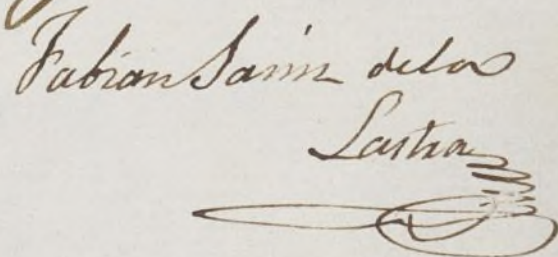 Fabian Sainz de la
Lastra